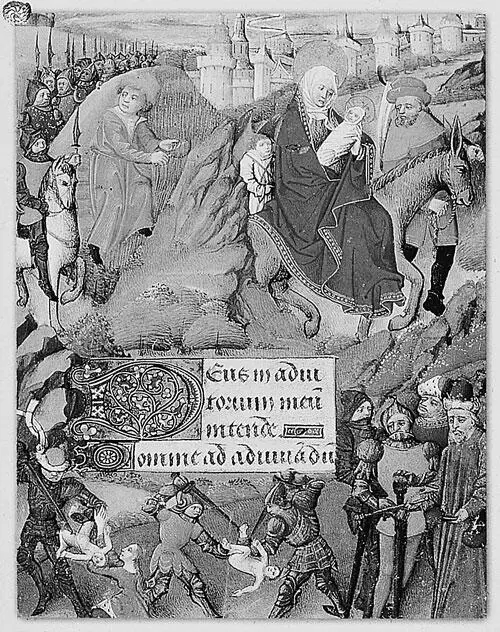 Deus in adiu
torium meū
intende
Domine ad adiuuādū